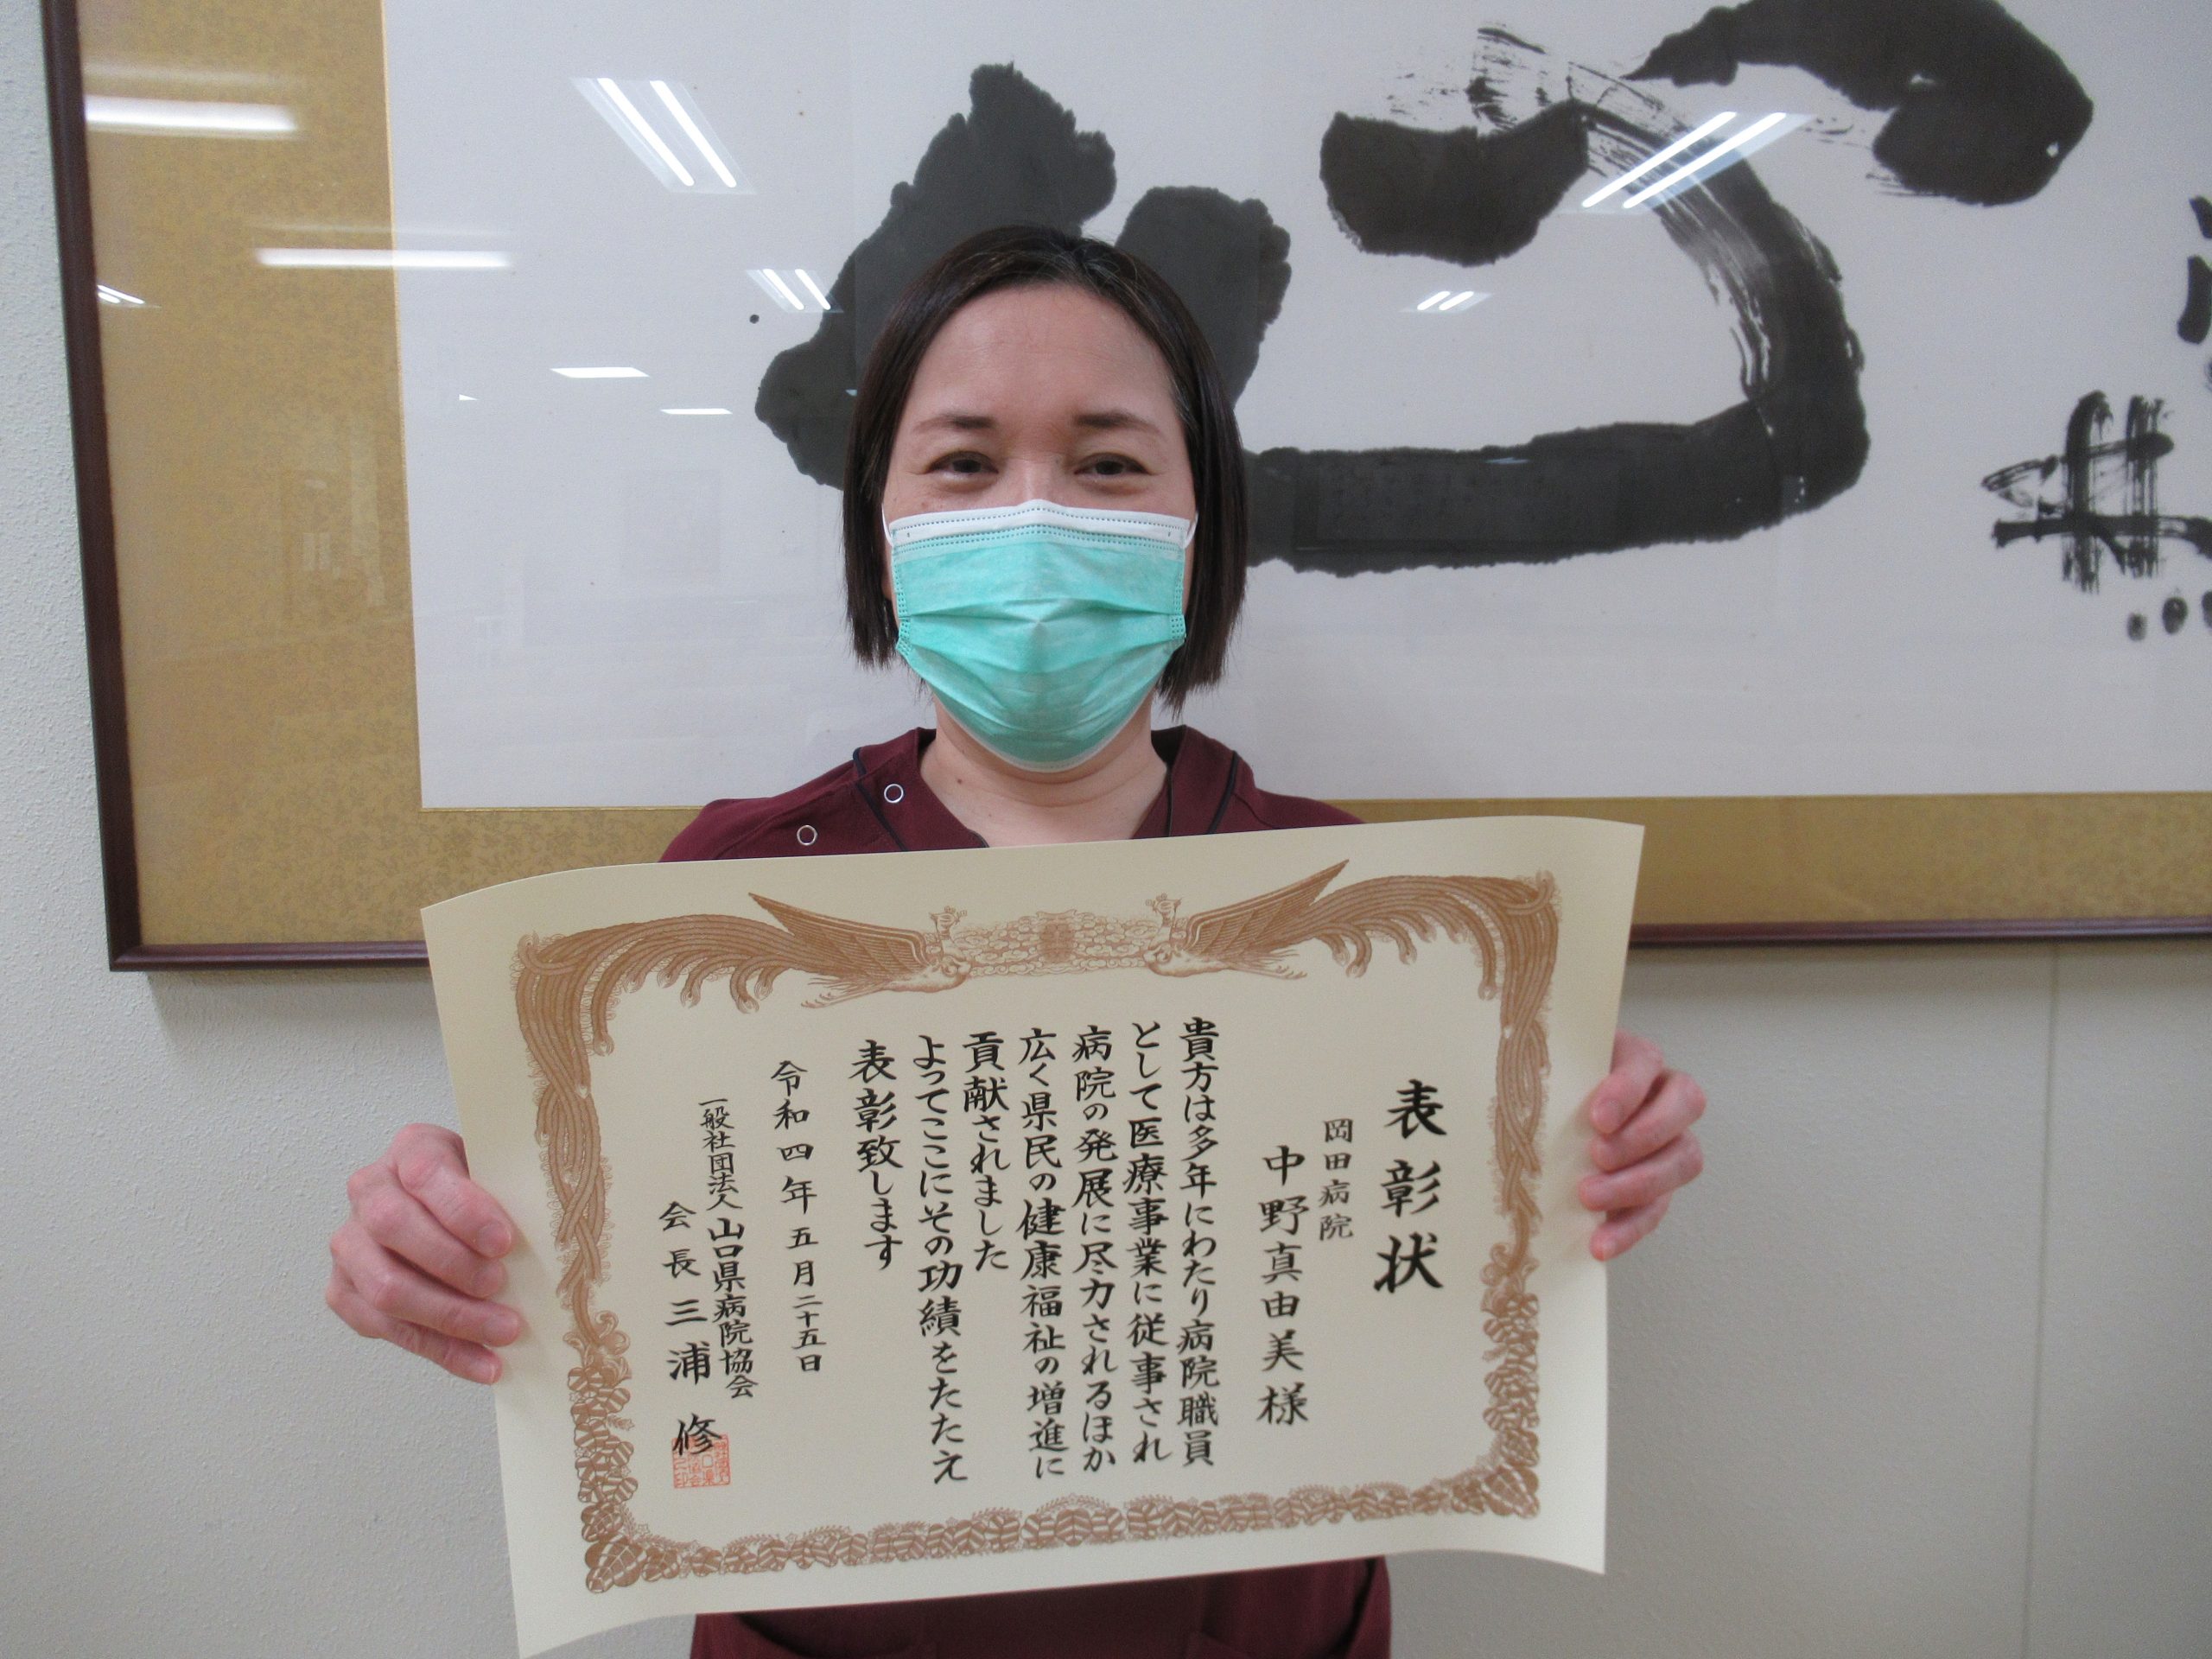 表彰状
岡田病院
中野真由美様
貴方は多年にわたり病院職員
として医療事業に従事され
病院の発展に尽力されるほか
広く県民の健康福祉の増進に
貢献されました
よってここにその功績をたたえ
表彰致します
令和四年五月二十五日
一般社団法人山口県病院協会
会長三浦修